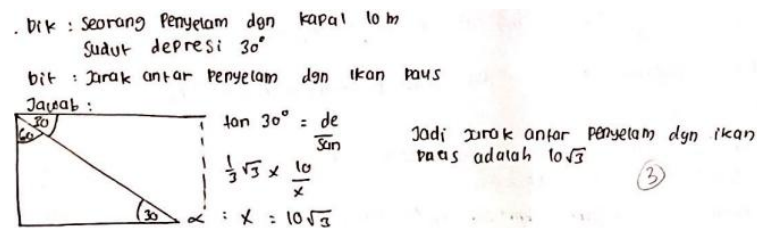 . Dik : Seorang Penyelam dgn kapal 10 m
Sudut depresi 30°
Dit : Jarak antar Penyelam dgn ikan paus
Jawab :
30
60
30
α
tan 30° = de/San
1/3 √3 × 10/x
: x = 10√3
Jadi Jarak antar penyelam dgn ikan
paus adalah 10√3
3